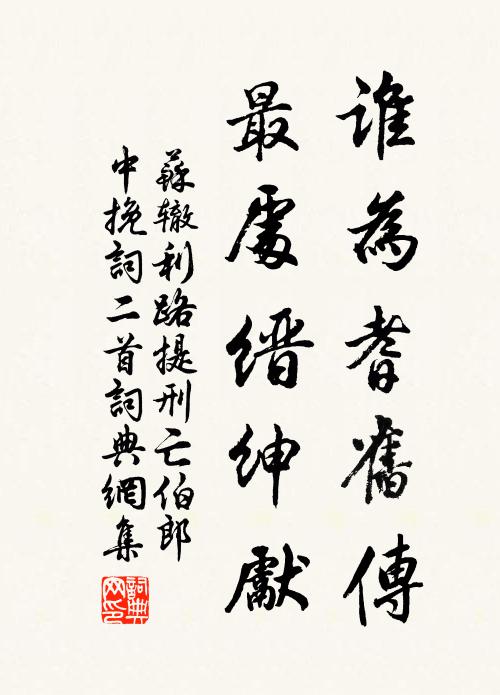 誰為耆舊傳
最處縉紳獻
蘇辙利路提刑亡伯郎
中挽詞二首詞典網集
詞典
网印